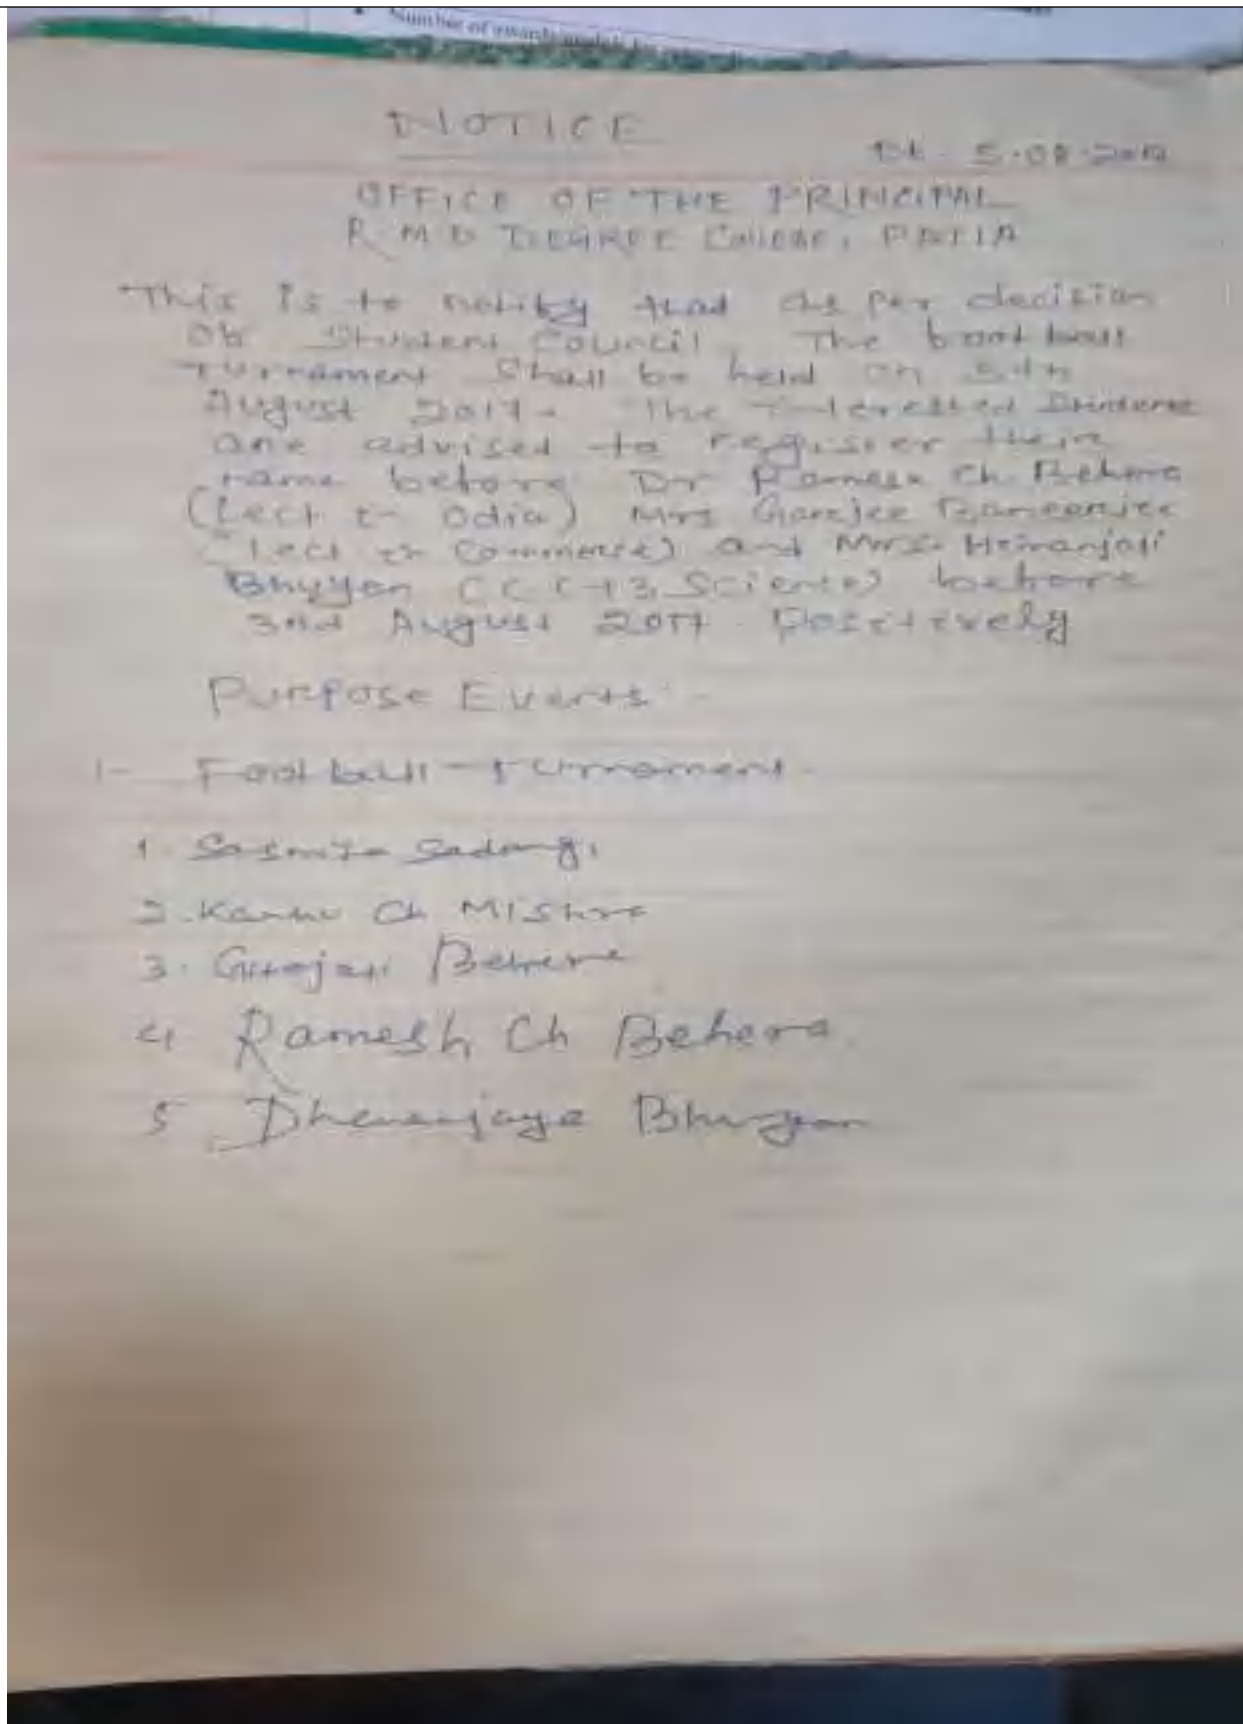 Number of awards
NOTICE
Dt. 5.08.2017
OFFICE OF THE PRINCIPAL
R M D DEGREE College, PATIA
This is to notify that as per decision
of Student Council The foot ball
Turnament Shall be held on 5th
August 2017. The interested Students
are advised to register their
name before Dr Ramesh Ch. Behera
(Lect in Odia) Mrs Banerjee
(Lect in Commerce) and Mrs. Hemanjali
Bhuyan (+3 Science) before
3rd August 2017 Positively
Purpose Events :-
1- Foot ball - turnament -
1. Sasmita Sadangi
2. Kanhu Ch Mishra
3. Behera
4 Ramesh Ch Behera.
5 Dhananjaya Bhuyan